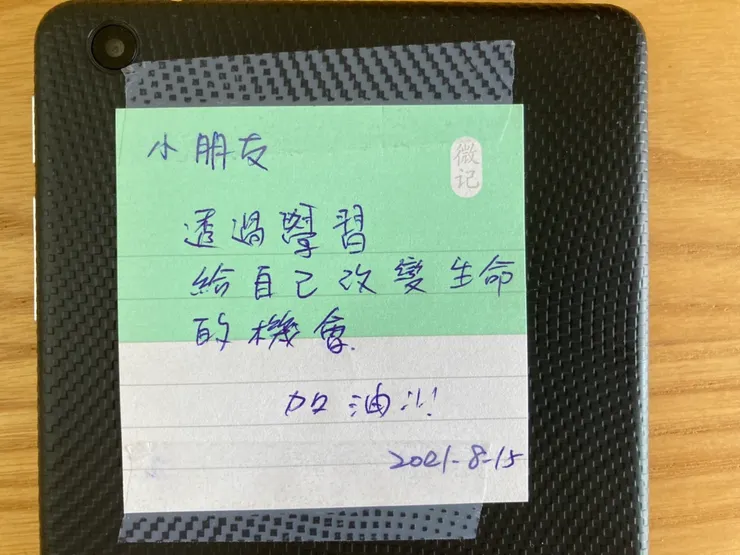 小朋友
微记
透過學習
給自己改變生命
的機會
加油!!!
2021-8-15